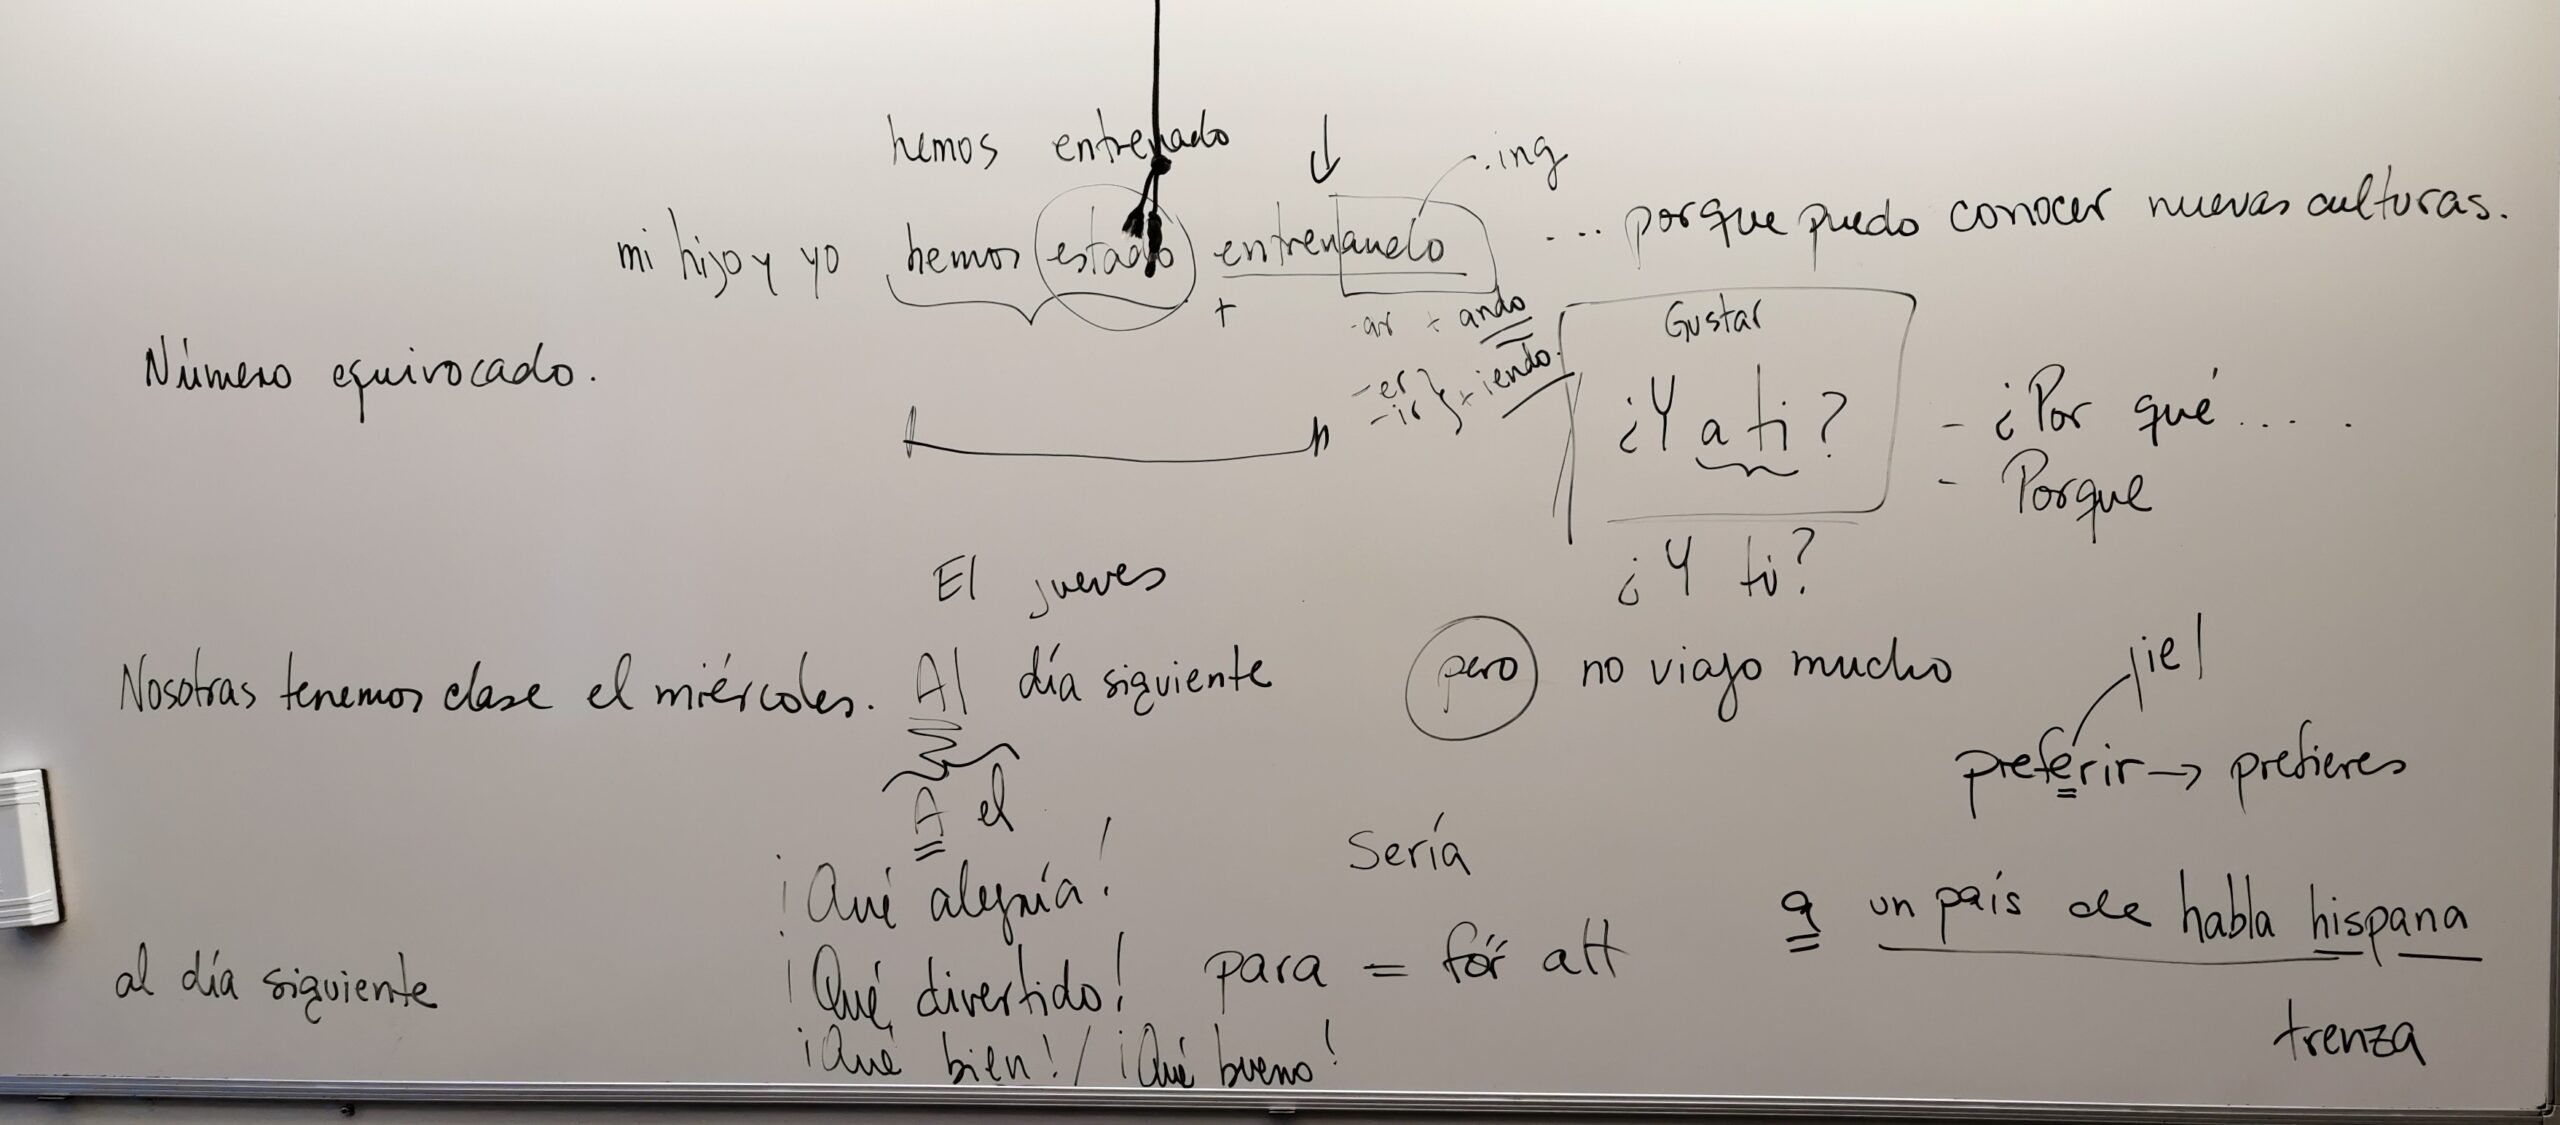 hemos entrenado
-ing
mi hijo y yo hemos estado entrenando
... porque puedo conocer nuevas culturas.
+
-ar + ando
-er
-ir } + iendo.
Número equivocado.
Gustar
¿Y a ti?
¿Y tú?
- ¿Por qué....
- Porque
El jueves
Nosotras tenemos clase el miércoles. Al día siguiente
A el
pero no viajo mucho
¡ie!
preferir → prefieres
Sería
¡Qué alegría!
¡Qué divertido!
¡Qué bien! / ¡Qué bueno!
para = för att
a un país de habla hispana
trenza
al día siguiente